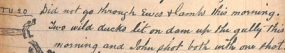 TU 30 Did not go through Ewes & lambs this morning.
Two wild ducks lit on dam up the gully this
morning and John shot both with one shot.